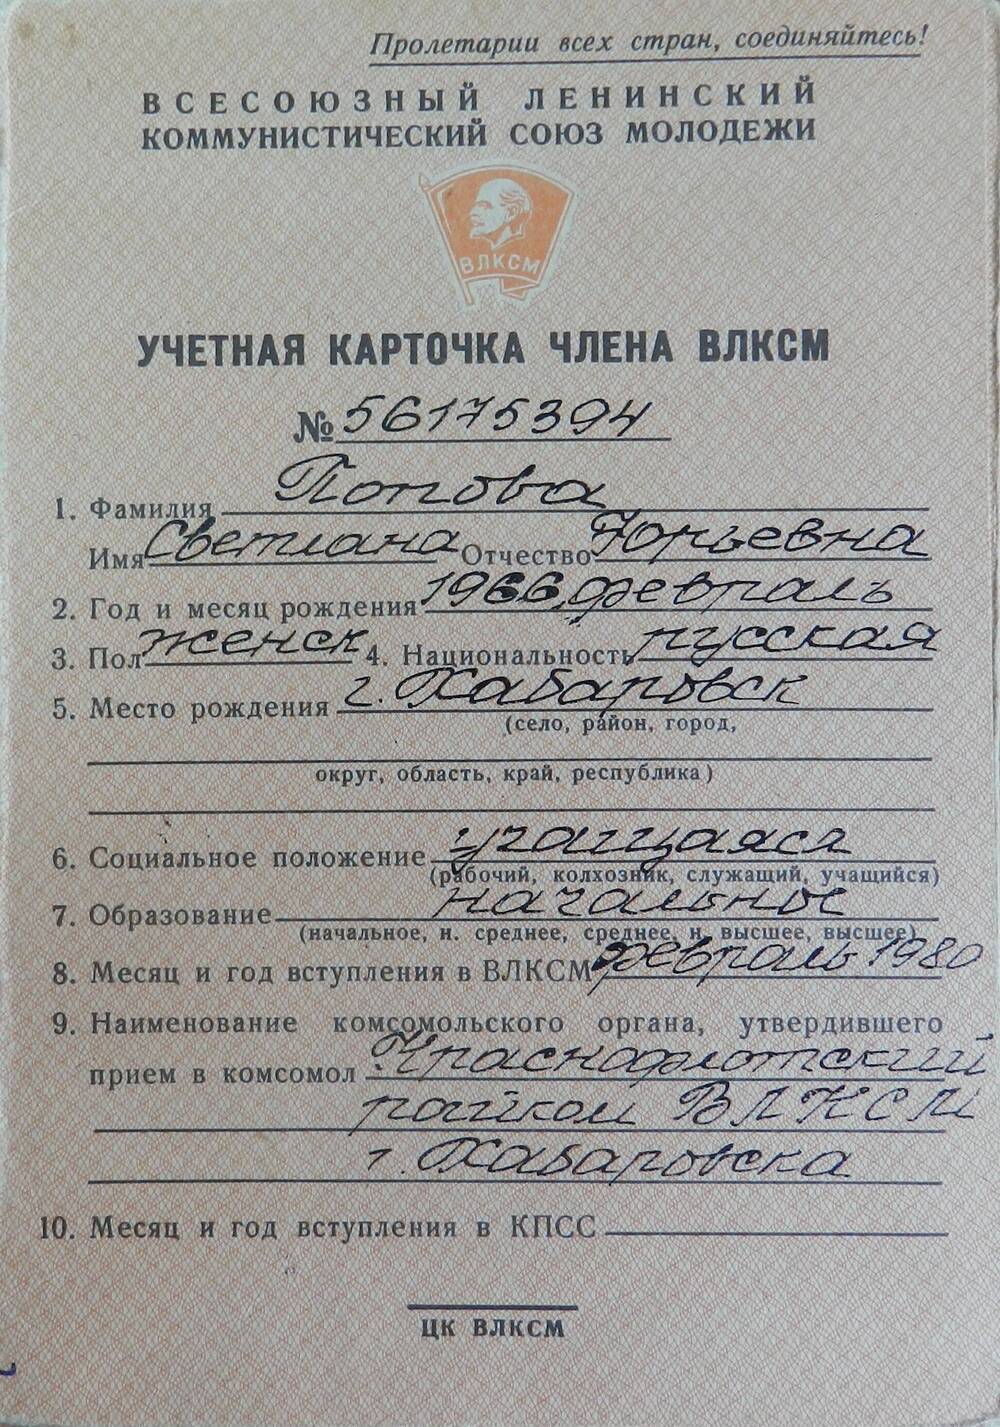 Пролетарии всех стран, соединяйтесь!
ВСЕСОЮЗНЫЙ ЛЕНИНСКИЙ
КОММУНИСТИЧЕСКИЙ СОЮЗ МОЛОДЕЖИ
ВЛКСМ
УЧЕТНАЯ КАРТОЧКА ЧЛЕНА ВЛКСМ
№ 56175394
1. Фамилия Попова
Имя Светлана Отчество Юрьевна
2. Год и месяц рождения 1966, февраль
3. Пол женск 4. Национальность русская
5. Место рождения г. Хабаровск
(село, район, город,
округ, область, край, республика)
6. Социальное положение учащаяся
(рабочий, колхозник, служащий, учащийся)
7. Образование начальное
(начальное, н. среднее, среднее, н. высшее, высшее)
8. Месяц и год вступления в ВЛКСМ февраль 1980
9. Наименование комсомольского органа, утвердившего
прием в комсомол Краснофлотский
райком ВЛКСМ
г. Хабаровска
10. Месяц и год вступления в КПСС
ЦК ВЛКСМ